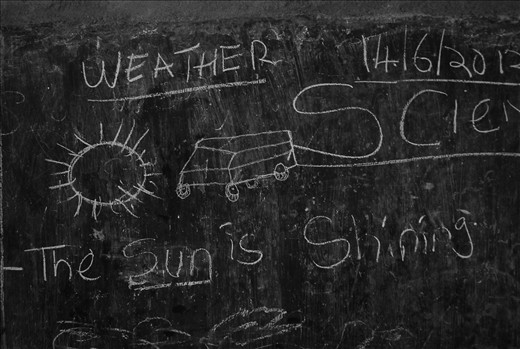 WEATHER 14/6/2012
Scien
The Sun is Shining.